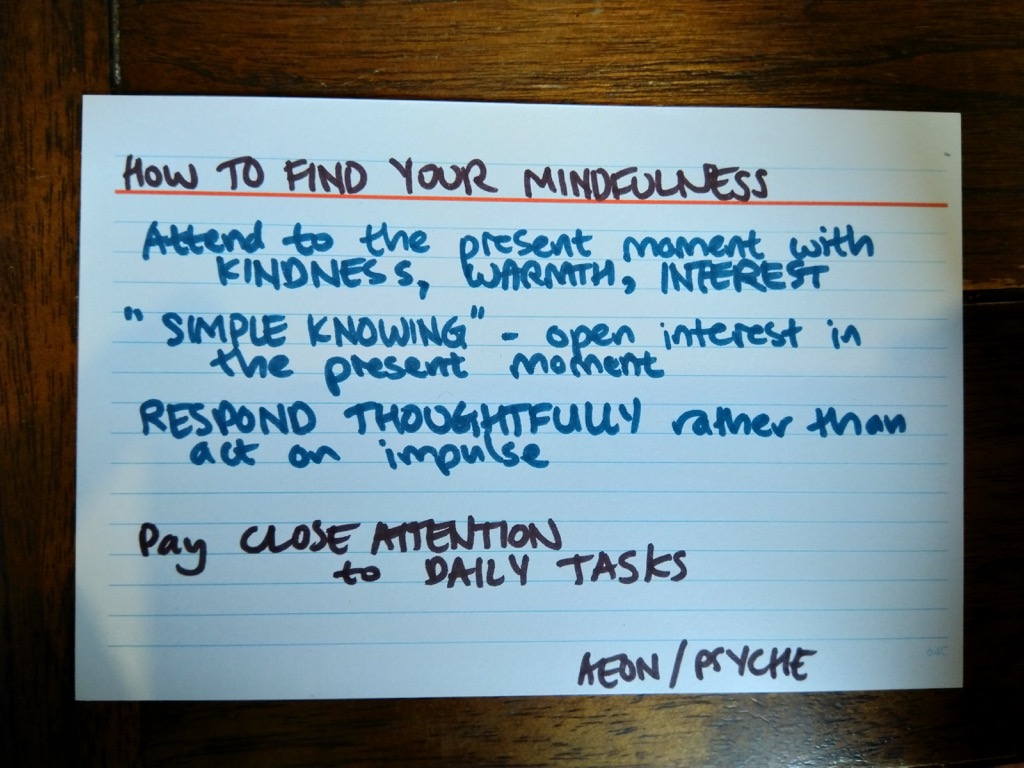 HOW TO FIND YOUR MINDFULNESS
Attend to the present moment with
KINDNESS, WARMTH, INTEREST
"SIMPLE KNOWING" - open interest in
the present moment
RESPOND THOUGHTFULLY rather than
act on impulse
Pay CLOSE ATTENTION
to DAILY TASKS
AEON/PSYCHE